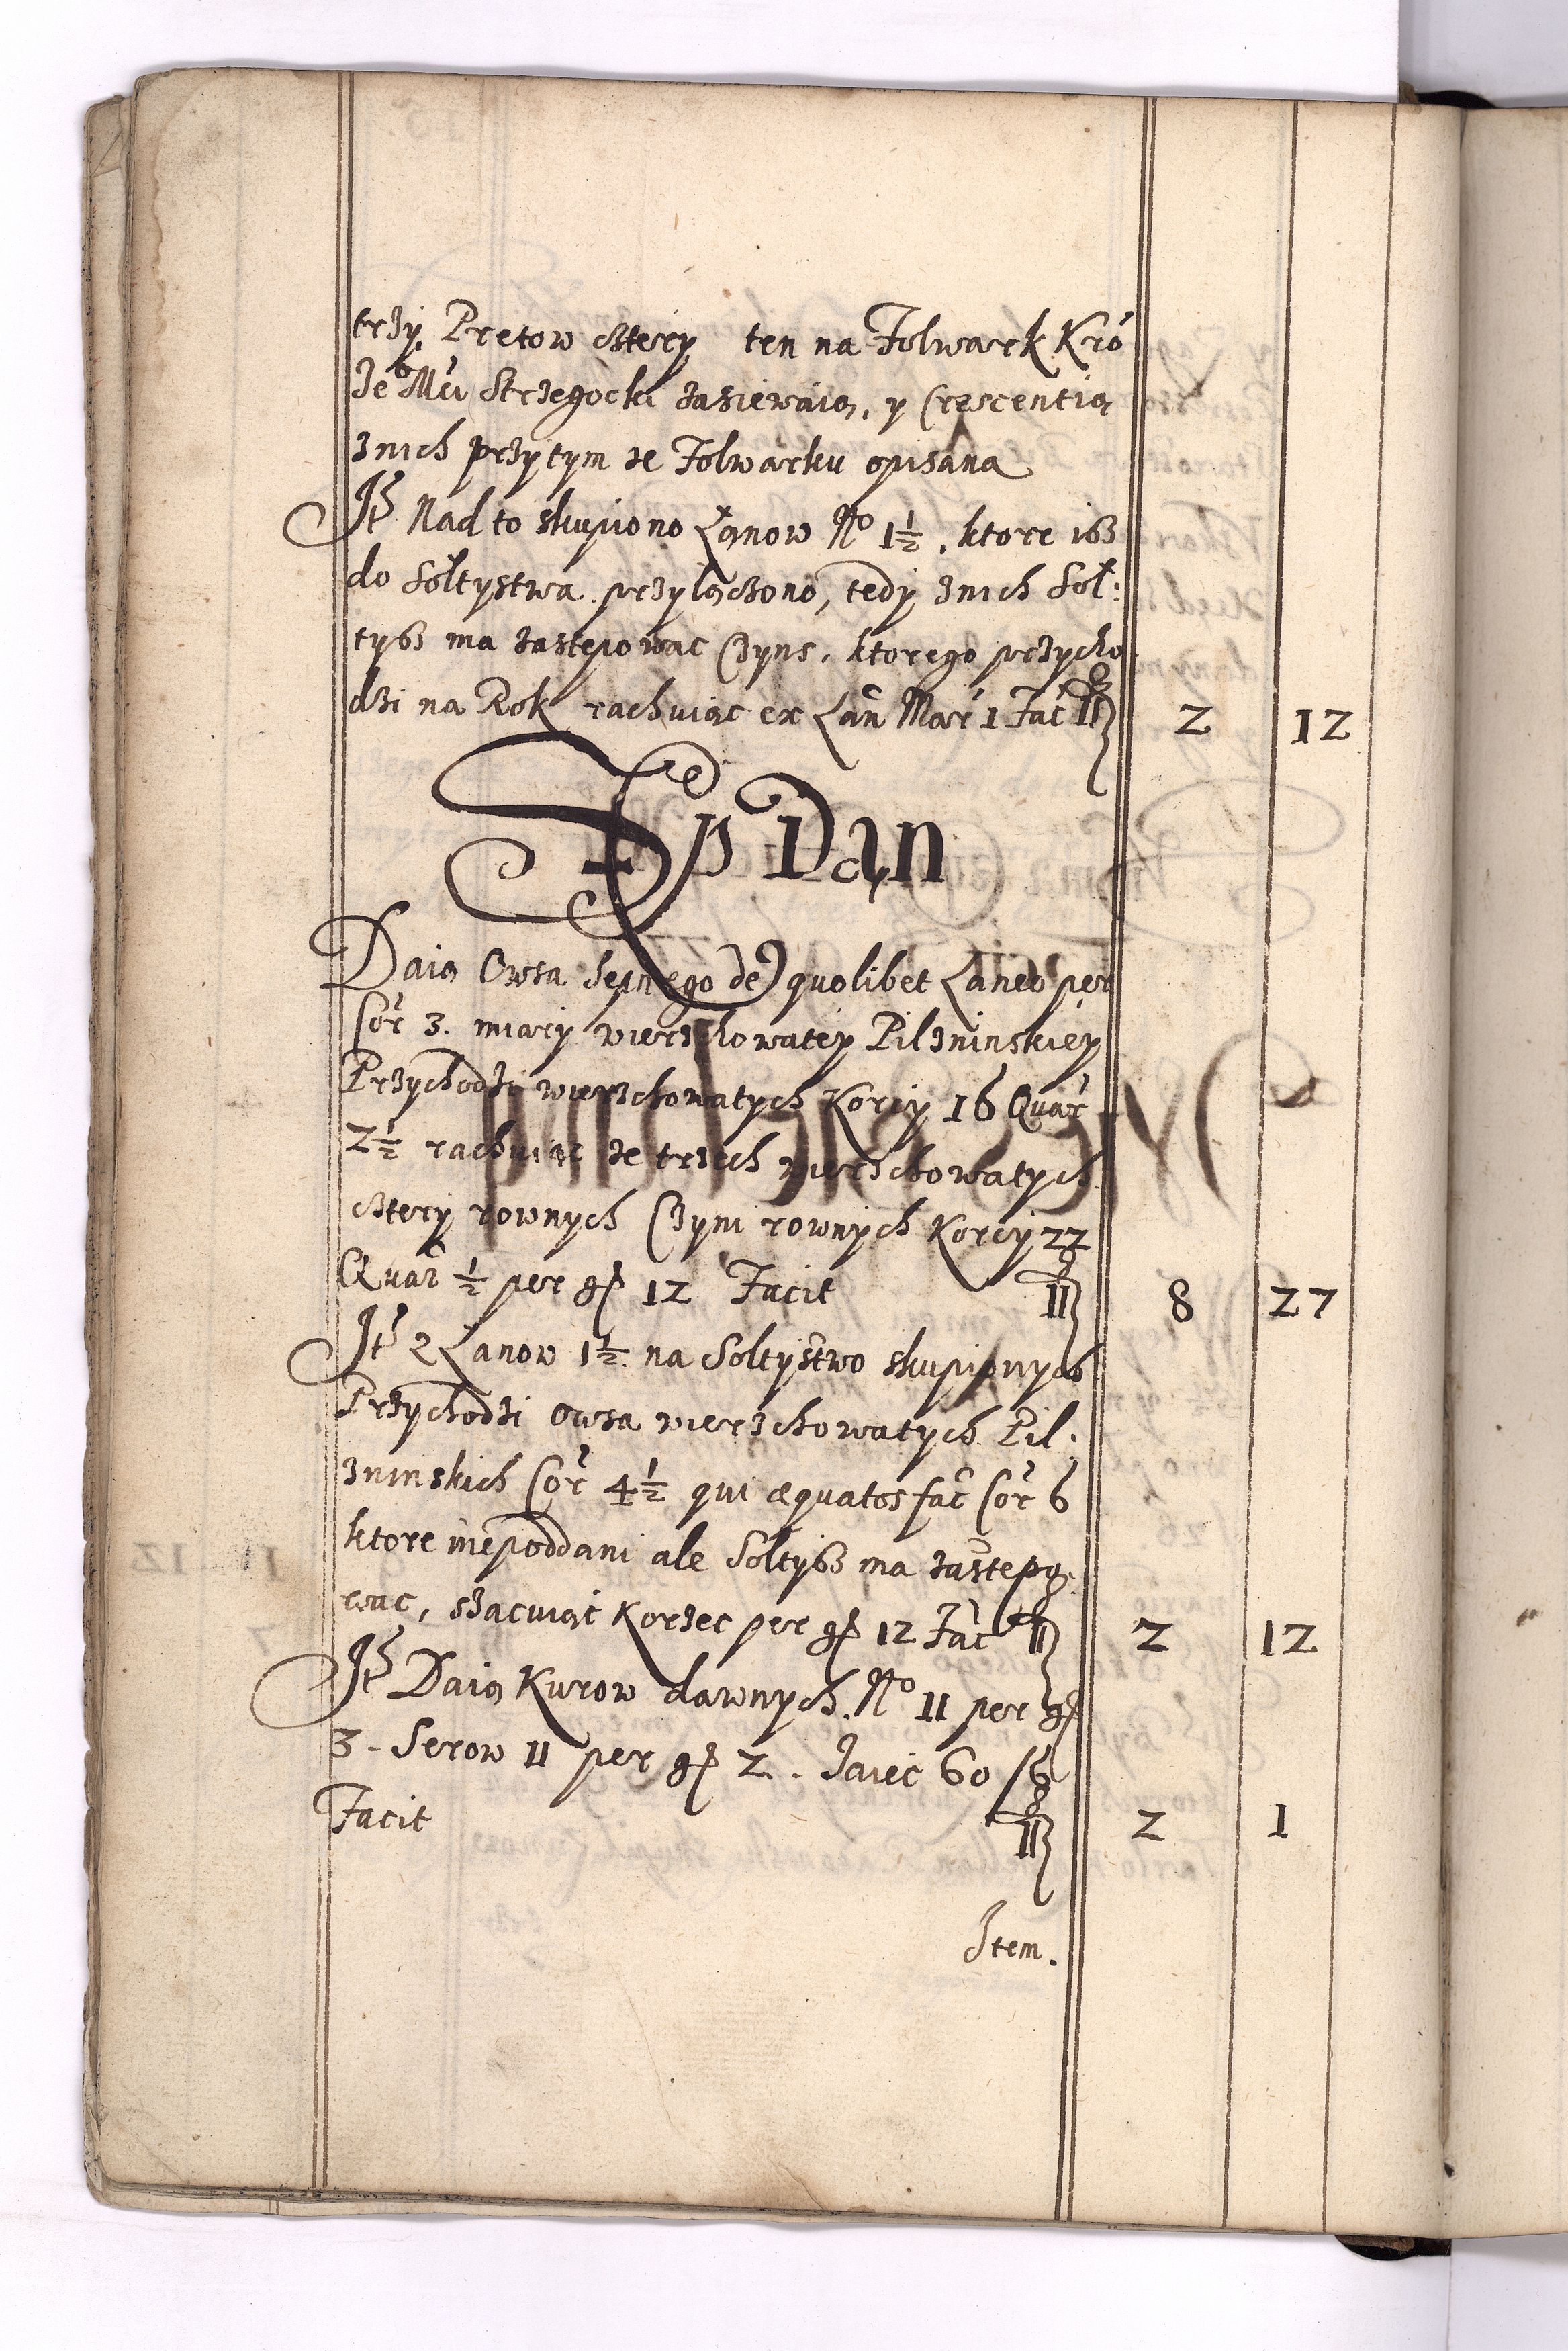 trzy, Pretow cztery ten na Folwark Kro
Je͞ Mci Strzegocki zasiewaią, y Crescentia
znich przytym ze Folwarku opisana
Jt͞ Nad to skupiono Łanow No 1½, ktore isz
do Sołtystwa przyłączono, tedy znich Soł:
tysz ma zastepowac Czyns, ktorego przycho
dzi na Rok rachuiąc ex Łan Mar 1 Fac fl 2 12
Sep Dan
Daią Owsa Sepnego de quolibet Laneo per
Cor 3. miary wierzchowatey Pilzninskiey
Przychodzi wierzchowatych Korcy 16 Quar
2½ rachuiąc ze trzech wierzchowatych
cztery rownych Czyni rownych Korcy 22
Quar ½ per gr 12 Facit fl 8 27
Jt͞ z Łanow 1½ na Sołtystwo skupionych
Przychodzi Owsa wierzchowatych Pil:
zninskich Cor 4½ qui æquatos fac Cor 6
ktore niepoddani ale Sołtysz ma zastępo
wac, szacuiąc Korzec per gr 12 Fac fl 2 12
Jt͞ Daią Kurow dawnych No 11 per gr
3 - Serow 11 per gr 2. Jaiec 60
Facit fl 2 1
Item.